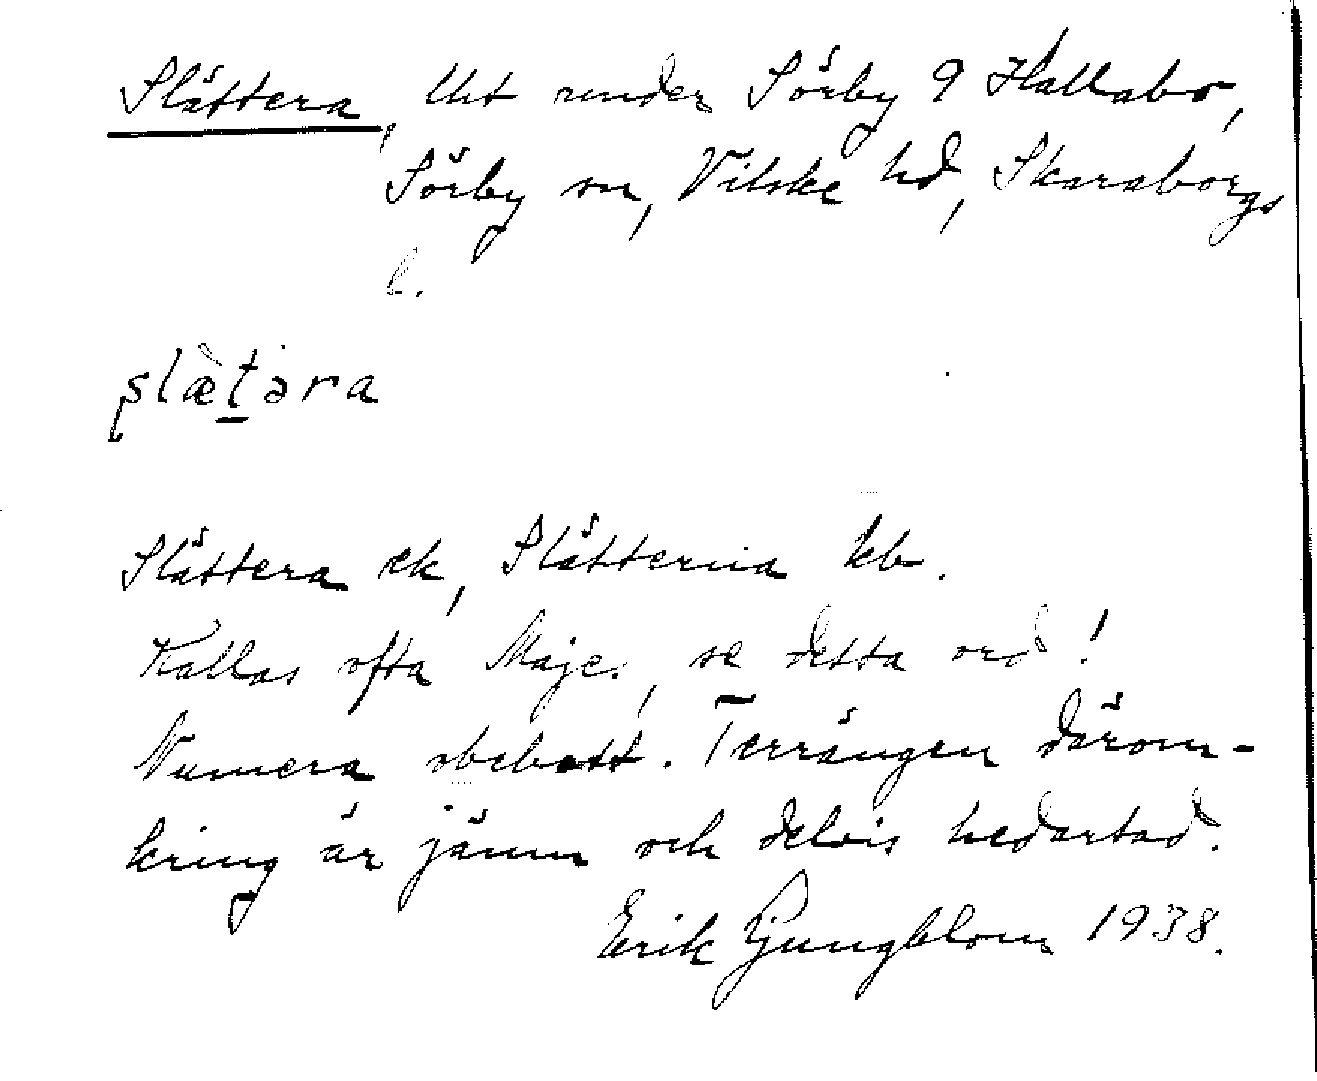 Slättera, Uht under Sörby 9 Hallabo,
Sörby sn, Vilske hd, Skaraborgs
l.
slæ̀təra
Slättera ek, Slätterna kb.
Kallas ofta Maje, se detta ord!
Numera obebott. Terrängen därom-
kring är jämn och delvis hedartad.
Erik Ljungblom 1938.